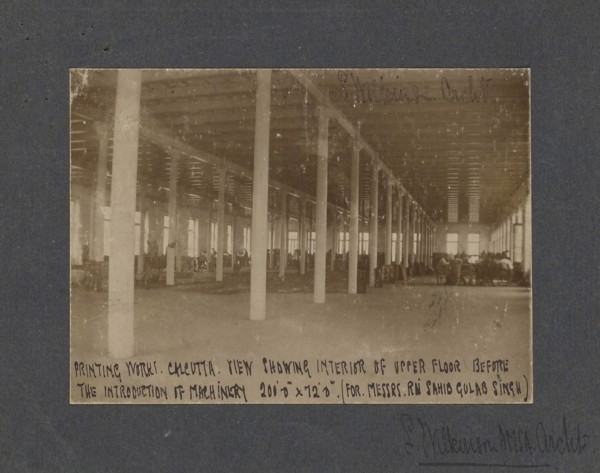 Wilkinson Archt
PRINTING WORKS. CALCUTTA. VIEW SHOWING INTERIOR OF UPPER FLOOR BEFORE
THE INTRODUCTION OF MACHINERY 200'0" x 72'0". (FOR. MESSRS. RAI SAHIB GULAB SINGH)
Wilkinson MSA. Archt